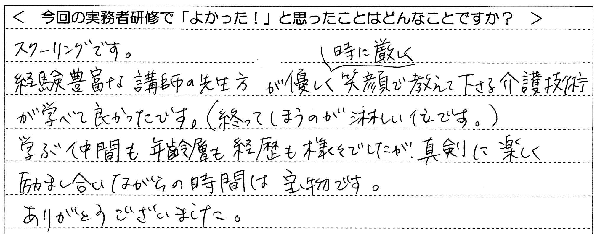 ＜ 今回の実務者研修で「よかった！」と思ったことはどんなことですか？ ＞
スクーリングです。
経験豊富な講師の先生方が優しく時に厳しく笑顔で教えて下さる介護技術
が学べて良かったです。（終ってしまうのが淋しい位です。）
学ぶ仲間も年齢層も経歴も様々でしたが、真剣に楽しく
励まし合いながらの時間は宝物です。
ありがとうございました。